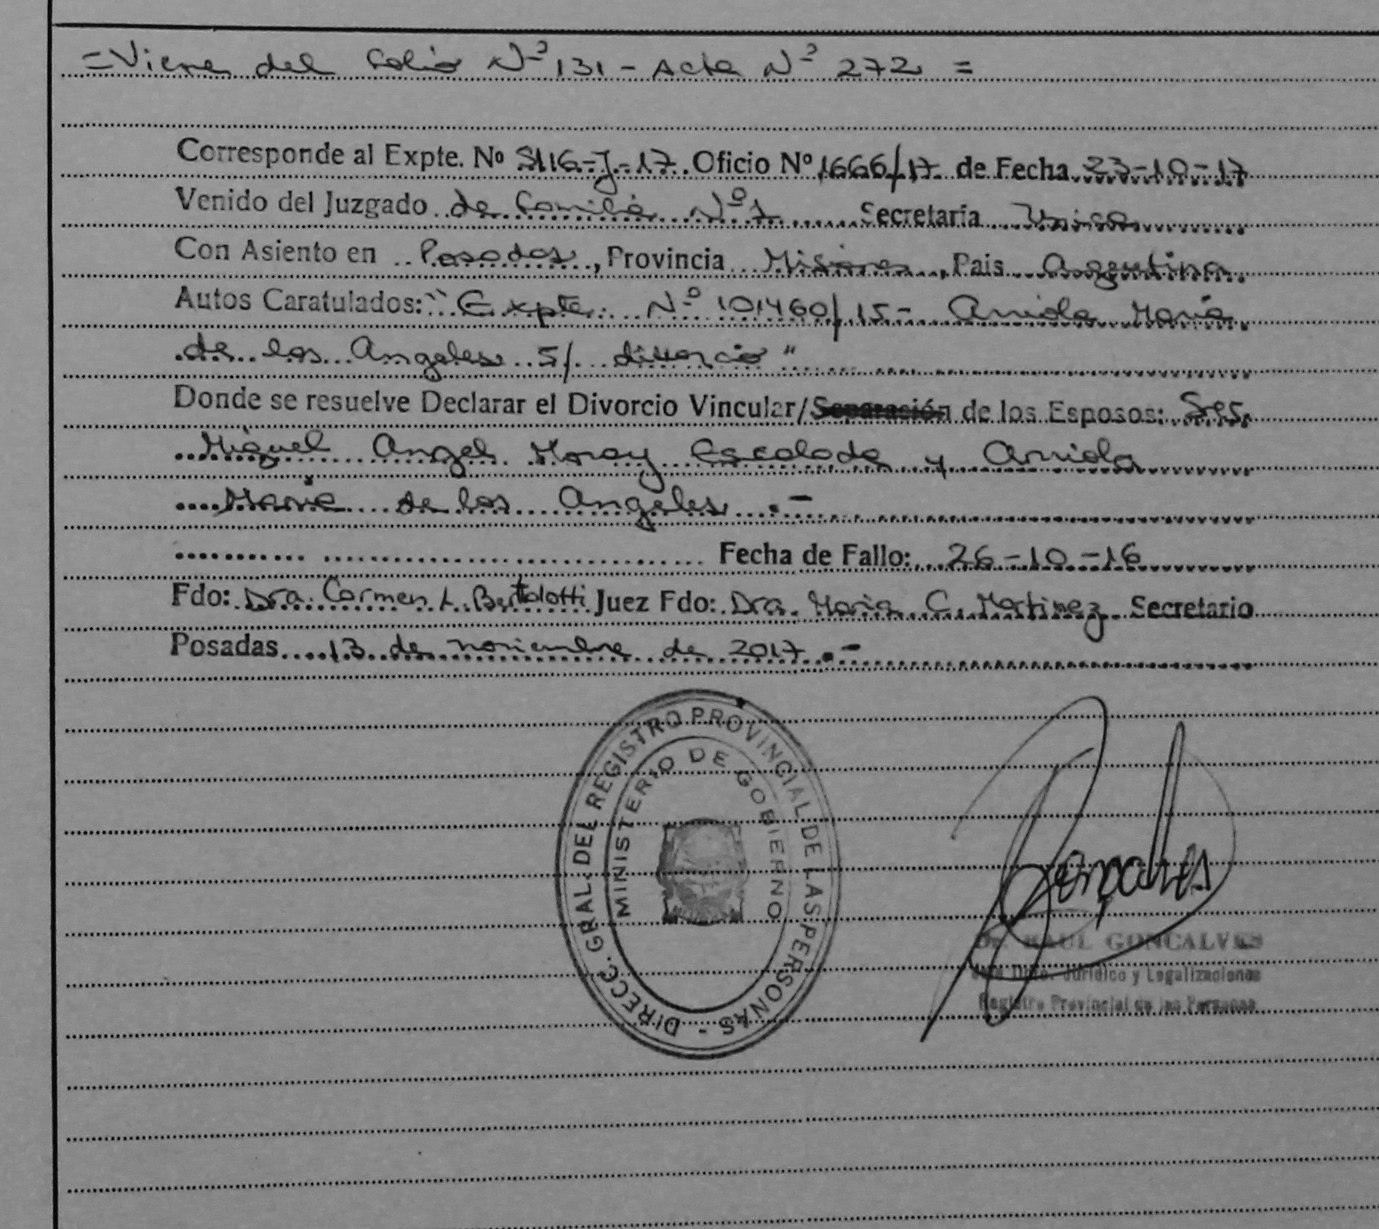 =Viene del Folio Nº 131 - Acta Nº 272 =
Corresponde al Expte. Nº 5116-J-17 Oficio Nº 1666/17 de Fecha 23-10-17
Venido del Juzgado de Familia Nº 1 Secretaría Unica
Con Asiento en Posadas, Provincia Misiones, Pais Argentina.
Autos Caratulados: "Expte. Nº 101460/15- Arriola María
de los Angeles S/ divorcio"
Donde se resuelve Declarar el Divorcio Vincular/Separación de los Esposos: Sres.
Miguel Angel Moray Escalada y Arriola
María de los Angeles .-
Fecha de Fallo: 26-10-16
Fdo: Dra. Carmen L. Bertolotti Juez Fdo: Dra. Maria C. Martinez Secretario
Posadas 13 de noviembre de 2017.-
DIRECC. GRAL. DEL REGISTRO PROVINCIAL DE LAS PERSONAS -
MINISTERIO DE GOBIERNO
Gonçalves
Dr. RAUL GONCALVES
Jurídico y Legalizaciones
Registro Provincial de las Personas